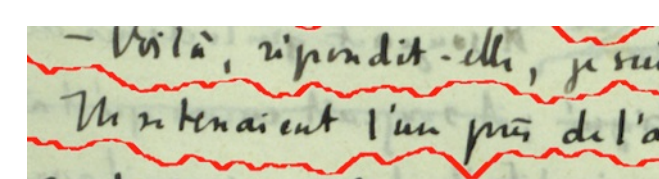 – Voilà, répondit-elle, je sui
Ils se tenaient l'un près de l'a